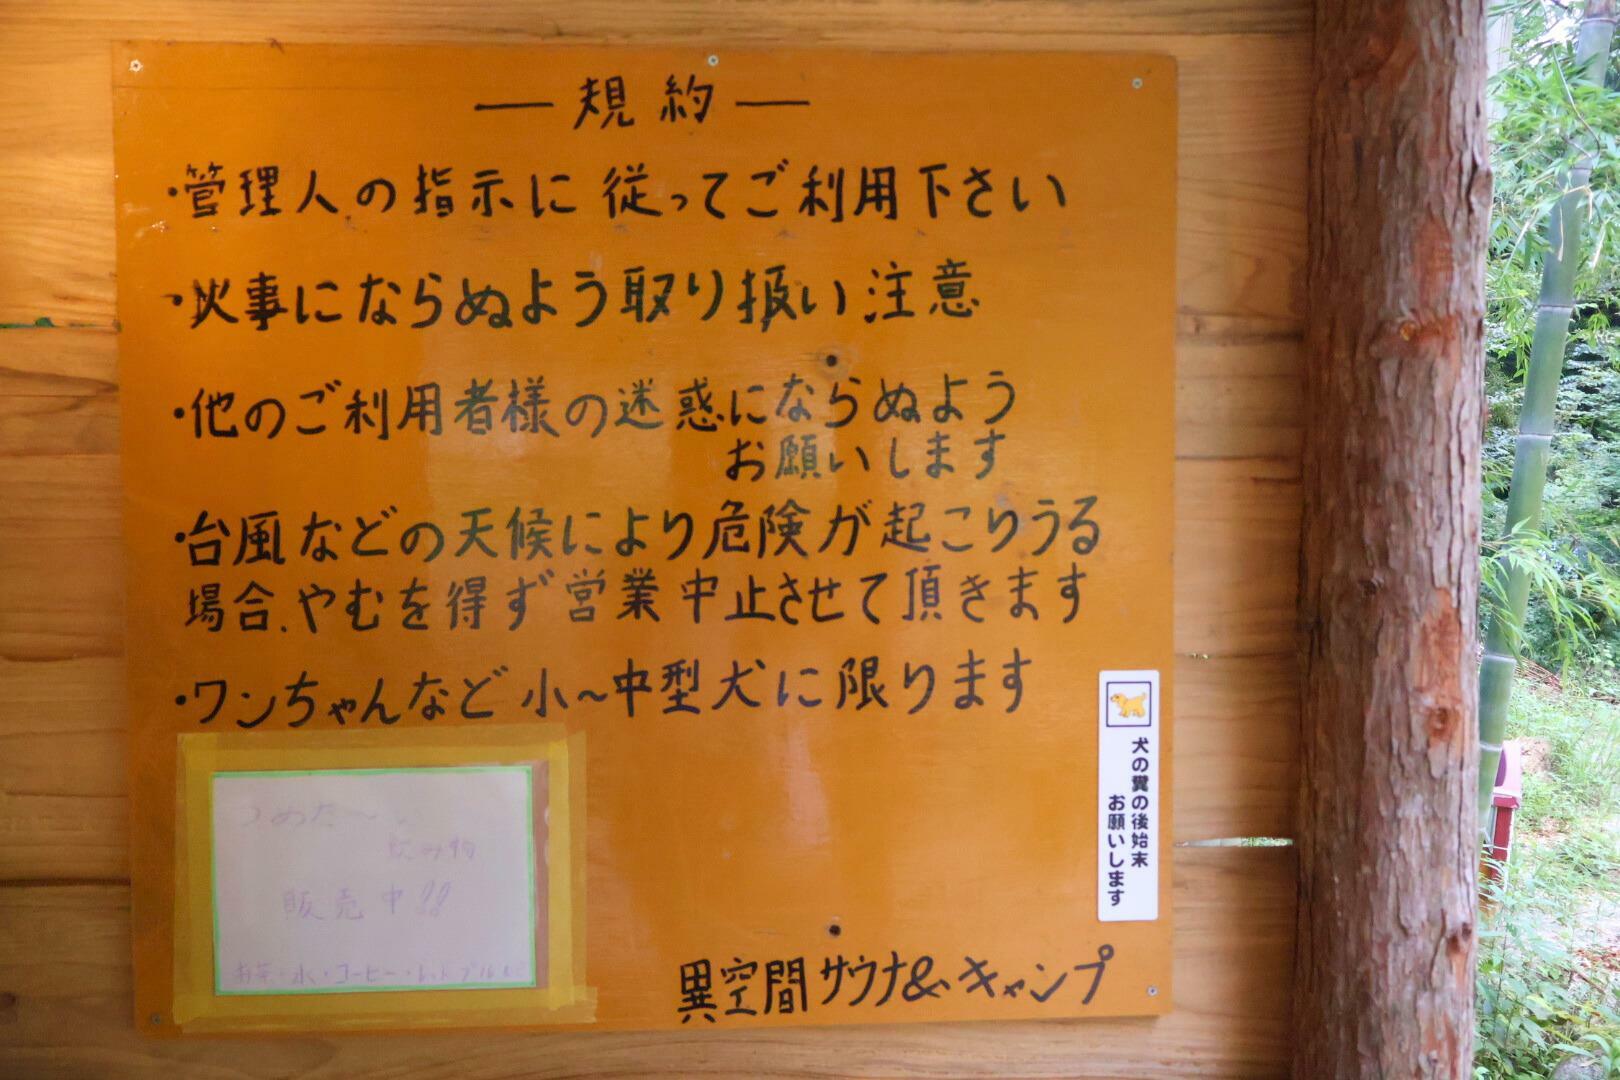 ― 規約 ―
・管理人の指示に従ってご利用下さい
・火事にならぬよう取り扱い注意
・他のご利用者様の迷惑にならぬよう
お願いします
・台風などの天候により危険が起こりうる
場合、やむを得ず営業中止させて頂きます
・ワンちゃんなど小~中型犬に限ります
つめた〜い
飲み物
販売中!!
お茶・水・コーヒー・レッドブルなど
犬の糞の後始末
お願いします
異空間サウナ&キャンプ